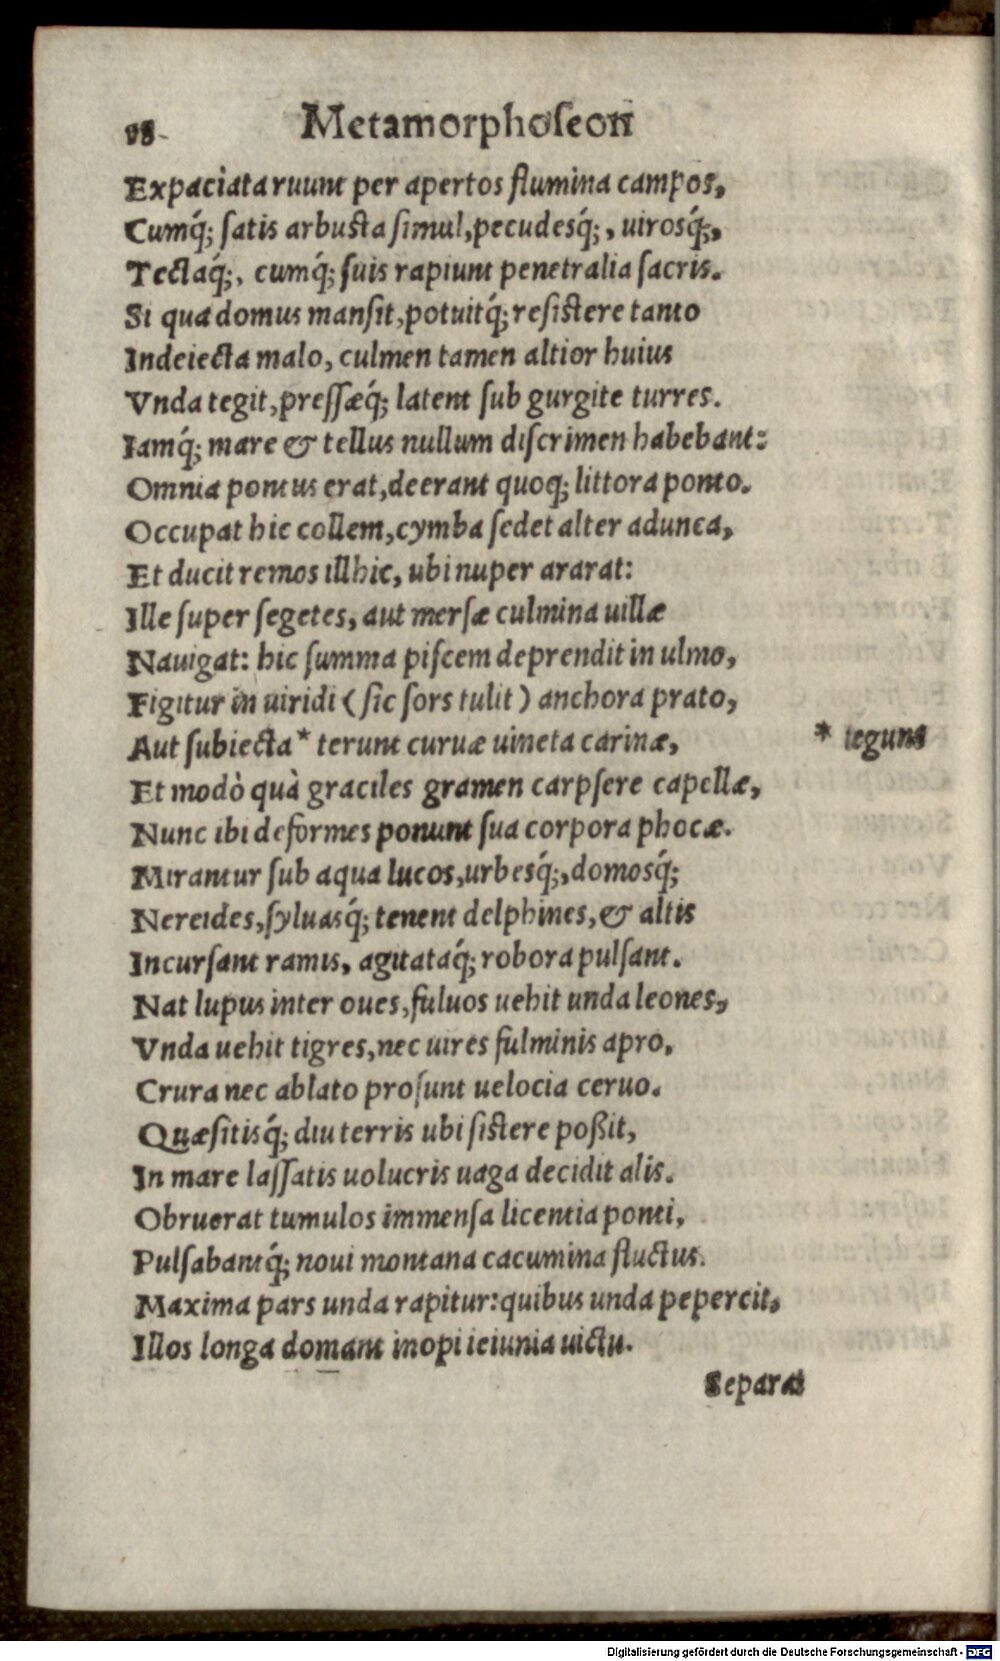 98 Metamorphoſeon
Expaciata ruunt per apertos flumina campos,
Cumq́; ſatis arbuſta ſimul, pecudesq́;, uirosq́;,
Tectaq́;, cumq́; ſuis rapiunt penetralia ſacris.
Si qua domus manſit, potuitq́; reſiſtere tanto
Indeiecta malo, culmen tamen altior huius
Vnda tegit, preſſæq́; latent ſub gurgite turres.
Iamq́; mare & tellus nullum diſcrimen habebant:
Omnia pontus erat, deerant quoq; littora ponto.
Occupat hic collem, cymba ſedet alter adunca,
Et ducit remos illhic, ubi nuper ararat:
Ille ſuper ſegetes, aut merſæ culmina uillæ
Nauigat: hic ſumma piſcem deprendit in ulmo,
Figitur in uiridi (ſic ſors tulit) anchora prato,
Aut ſubiecta * terunt curuæ uineta carinæ, * tegunt
Et modò quà graciles gramen carpſere capellæ,
Nunc ibi deformes ponunt ſua corpora phocæ.
Mirantur ſub aqua lucos, urbesq́;, domosq́;
Nereides, ſyluasq́; tenent delphines, & altis
Incurſant ramis, agitataq́; robora pulſant.
Nat lupus inter oues, fuluos uehit unda leones,
Vnda uehit tigres, nec uires fulminis apro,
Crura nec ablato proſunt uelocia ceruo.
Quæſitisq́; diu terris ubi ſiſtere poßit,
In mare laſſatis uolucris uaga decidit alis.
Obruerat tumulos immenſa licentia ponti,
Pulſabantq́; noui montana cacumina fluctus.
Maxima pars unda rapitur: quibus unda pepercit,
Illos longa domant inopi ieiunia uictu.
Separat
Digitalisierung gefördert durch die Deutsche Forschungsgemeinschaft - DFG